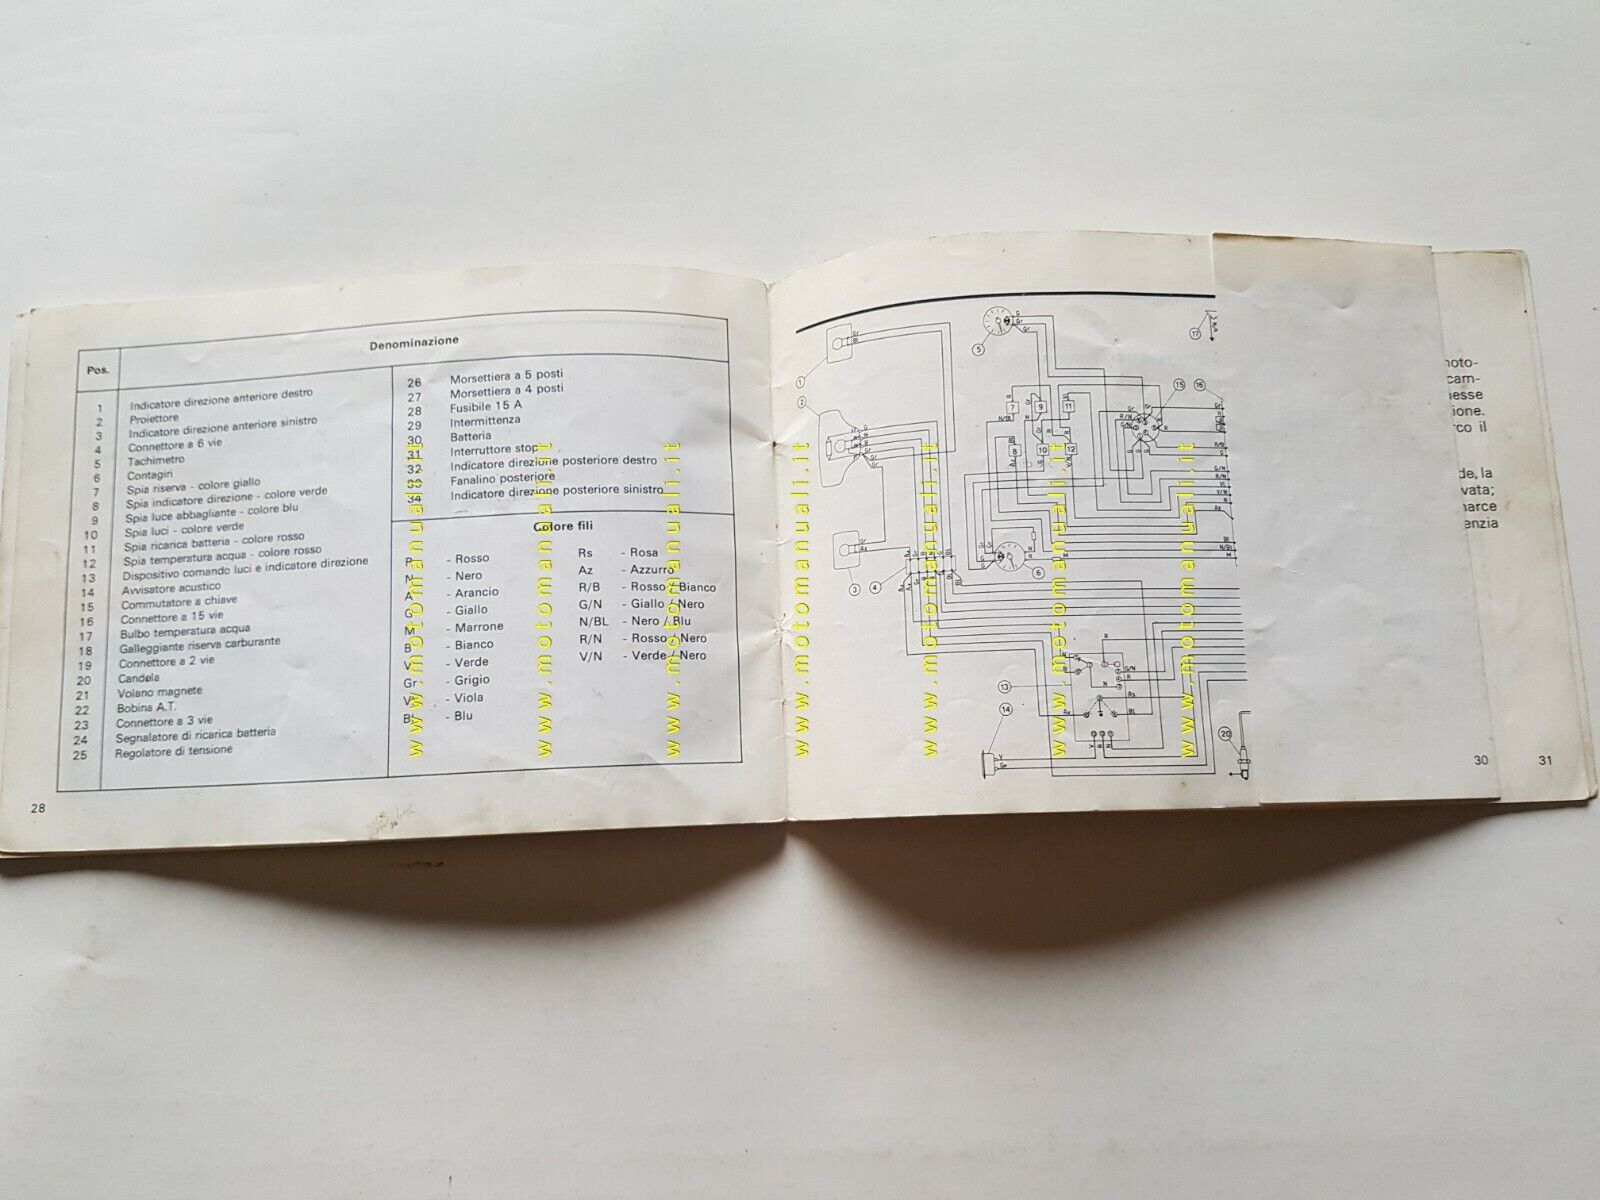 Pos.
Denominazione
1 Indicatore direzione anteriore destro
2 Proiettore
3 Indicatore direzione anteriore sinistro
4 Connettore a 6 vie
5 Tachimetro
6 Contagiri
7 Spia riserva - colore giallo
8 Spia indicatore direzione - colore verde
9 Spia luce abbagliante - colore blu
10 Spia luci - colore verde
11 Spia ricarica batteria - colore rosso
12 Spia temperatura acqua - colore rosso
13 Dispositivo comando luci e indicatore direzione
14 Avvisatore acustico
15 Commutatore a chiave
16 Connettore a 15 vie
17 Bulbo temperatura acqua
18 Galleggiante riserva carburante
19 Connettore a 2 vie
20 Candela
21 Volano magnete
22 Bobina A.T.
23 Connettore a 3 vie
24 Segnalatore di ricarica batteria
25 Regolatore di tensione
26 Morsettiera a 5 posti
27 Morsettiera a 4 posti
28 Fusibile 15 A
29 Intermittenza
30 Batteria
31 Interruttore stop
32 Indicatore direzione posteriore destro
33 Fanalino posteriore
34 Indicatore direzione posteriore sinistro
Colore fili
R - Rosso
N - Nero
A - Arancio
G - Giallo
M - Marrone
B - Bianco
V - Verde
Gr - Grigio
- Viola
Bl - Blu
Rs - Rosa
Az - Azzurro
R/B - Rosso / Bianco
G/N - Giallo / Nero
N/BL - Nero / Blu
R/N - Rosso / Nero
V/N - Verde / Nero
28
www.motomanuali.it
www.motomanuali.it
www.motomanuali.it
www.motomanuali.it
www.motomanuali.it
www.motomanuali.it
www.motomanuali.it
1
2
3
4
5
6
7
8
9
10
11
12
13
14
15
16
17
20
moto-
cam-
esse
ione.
rco il
de, la
vata;
marce
enzia
30
31